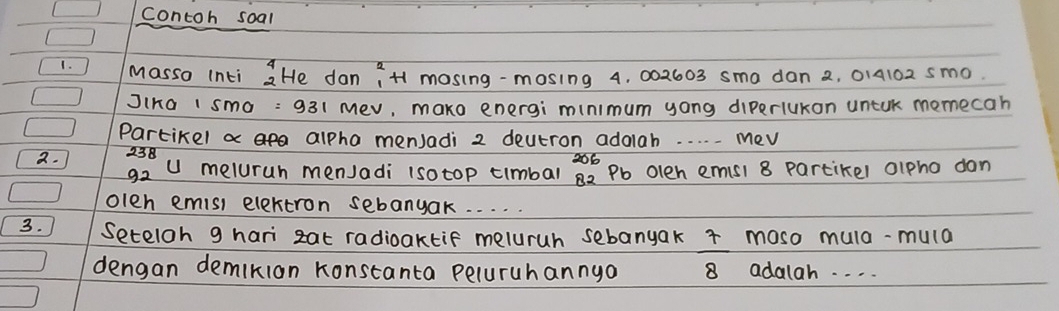 Contoh soal
1. Massa inti ⁴₂He dan ²₁H masing-masing 4,002603 sma dan 2,014102 sma.
Jika 1 sma = 931 Mev, maka energi minimum yang diperlukan untuk memecah
Partikel α alpha menjadi 2 deutron adalah ..... Mev
2. ²³⁸₉₂U meluruh menjadi isotop timbal ²⁰⁶₈₂Pb oleh emisi 8 partikel alpha dan
oleh emisi elektron sebanyak .....
3. Setelah 9 hari zat radioaktif meluruh sebanyak 7/8 masa mula-mula
dengan demikian konstanta peluruhannya adalah ....